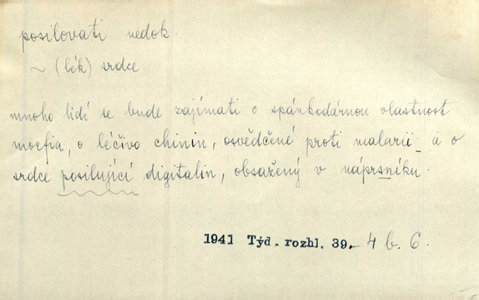 posilovati nedok.
~ (lék) srdce.
mnoho lidí se bude zajímati o spánkodárnou vlastnost
morfia, o léčivo chinin, osvědčené proti malarii a o
srdce posilující digitalin, obsažený v náprsníku.
1941 Týd. rozhl. 39. 4 b. 6.